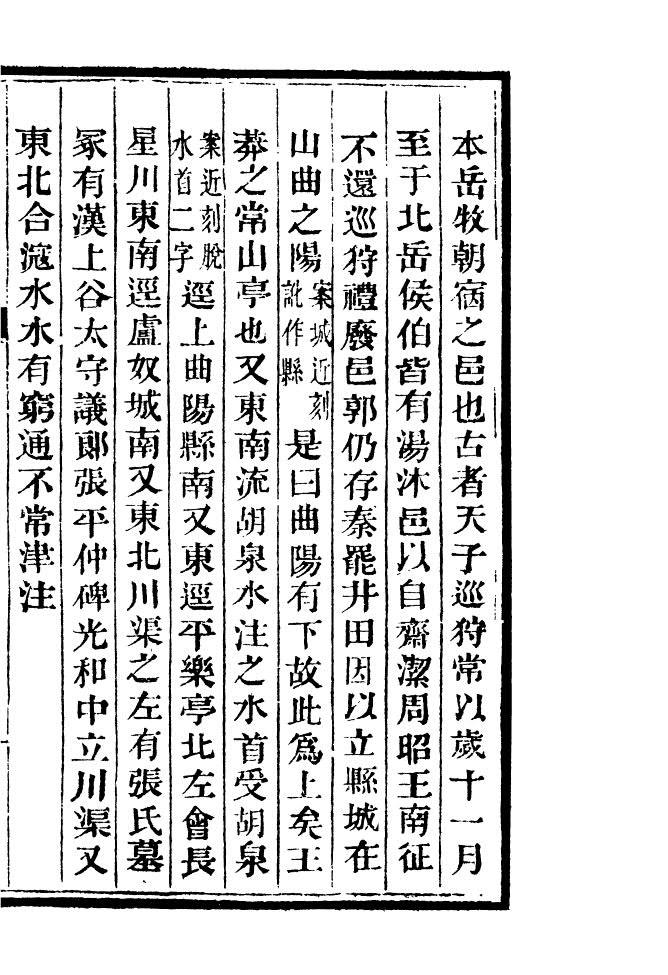 本岳牧朝宿之邑也古者天子巡狩常以歲十一月
至于北岳侯伯皆有湯沐邑以自齋潔周昭王南征
不還巡狩禮廢邑郭仍存秦罷井田因以立縣城在
山曲之陽案城近刻訛作縣是曰曲陽有下故此爲上矣王
莽之常山亭也又東南流胡泉水注之水首受胡泉
案近刻脫水首二字逕上曲陽縣南又東逕平樂亭北左會長
星川東南逕盧奴城南又東北川渠之左有張氏墓
冢有漢上谷太守議郎張平仲碑光和中立川渠又
東北合滱水水有窮通不常津注